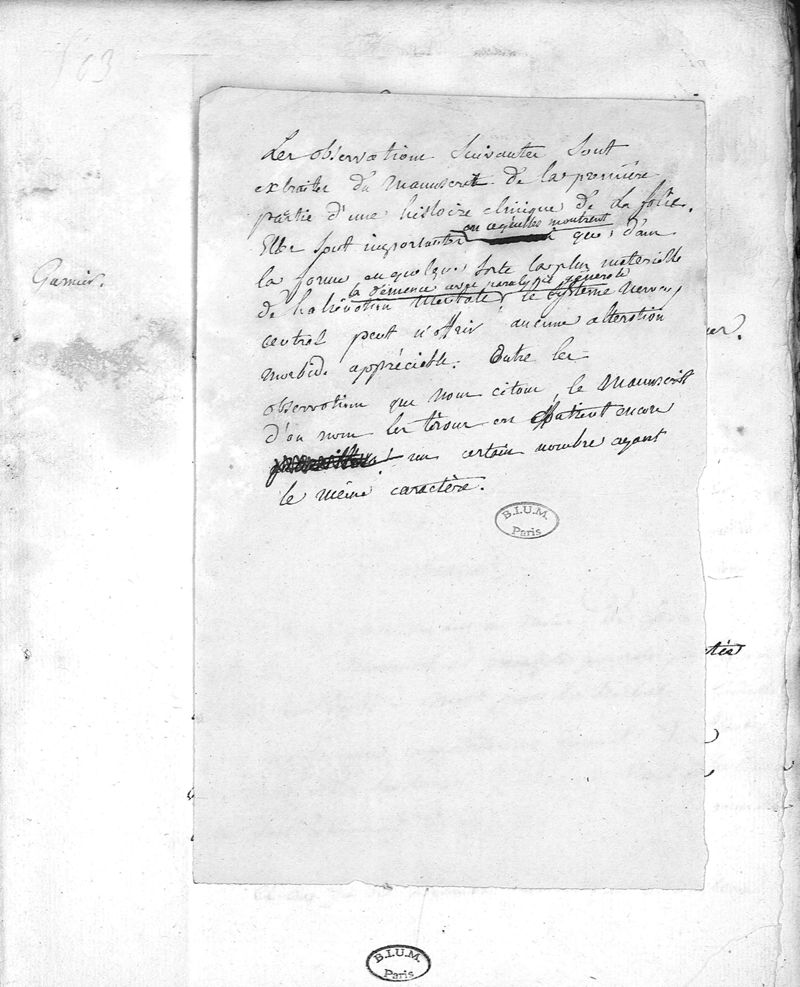 Les observations suivantes sont
extraites du manuscrit de la première
partie d'une histoire clinique de la folie.
en ce qu'elles montrent
Elles sont importantes que, dans
la forme en quelque sorte la plus matérielle
la démence avec paralysie générale
de l'aliénation mentale, le système nerveux
central peut n'offrir aucune altération
morbide appréciable. Entre les
observations que nous citons, le manuscrit
d'où nous les tirons en contient encore
un certain nombre ayant
le même caractère.
B.I.U.M.
Paris
103
tés
B.I.U.M.
Paris